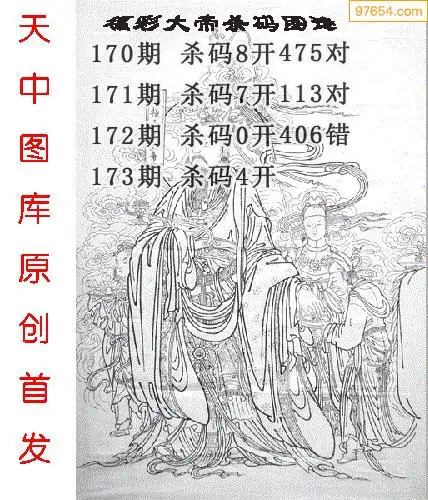 97654.com
福彩大帝杀码图谜
170期 杀码8开475对
171期 杀码7开113对
172期 杀码0开406错
173期 杀码4开
天中图库原创首发